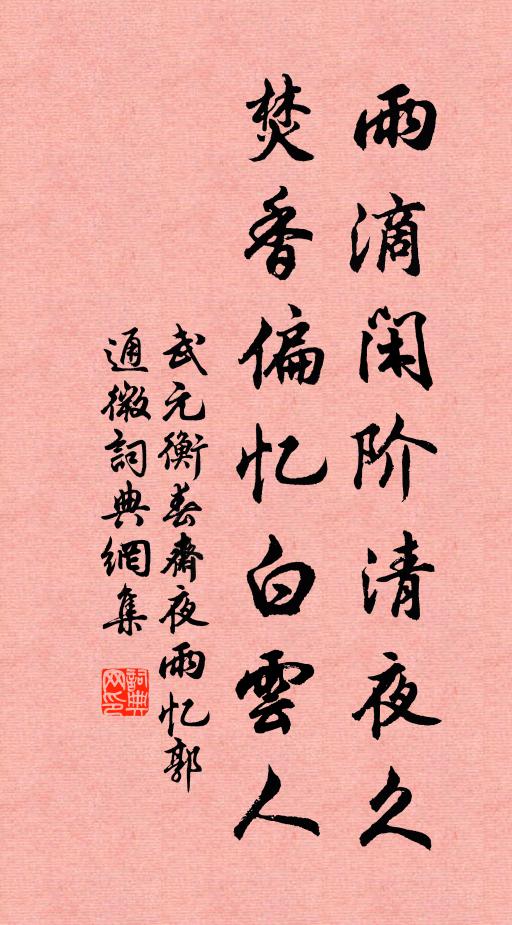 雨滴闲阶清夜久
焚香偏忆白雲人
武元衡春齋夜雨忆郭
通微詞典網集
詞典
网印